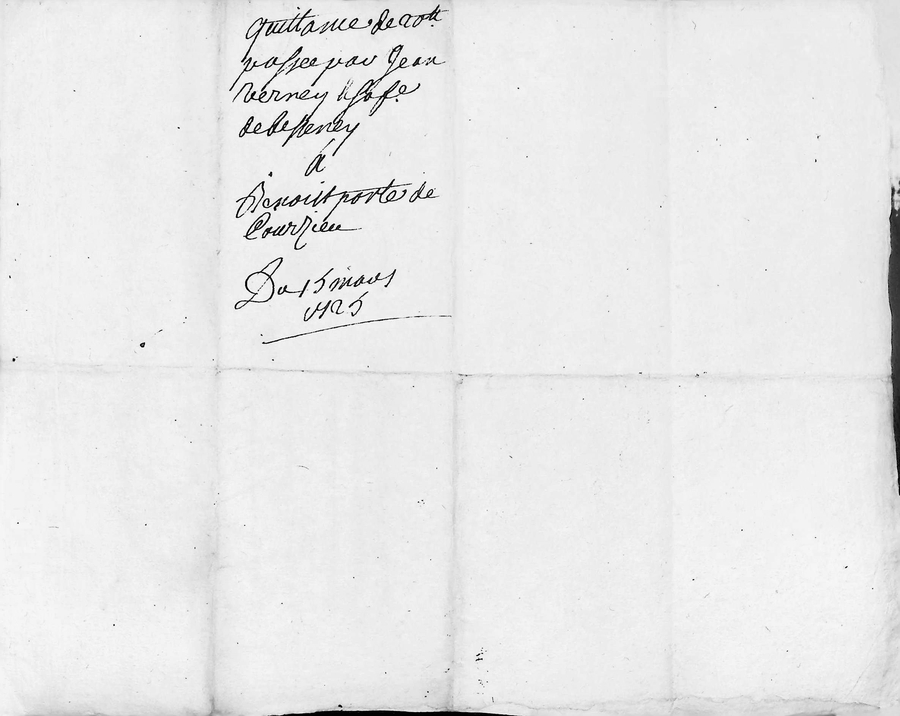 quittance de 20tt
passee par Jean
verney & sa fe
de besseney
a
Benoist porte de
Courzieu
Du 15 mars
1725